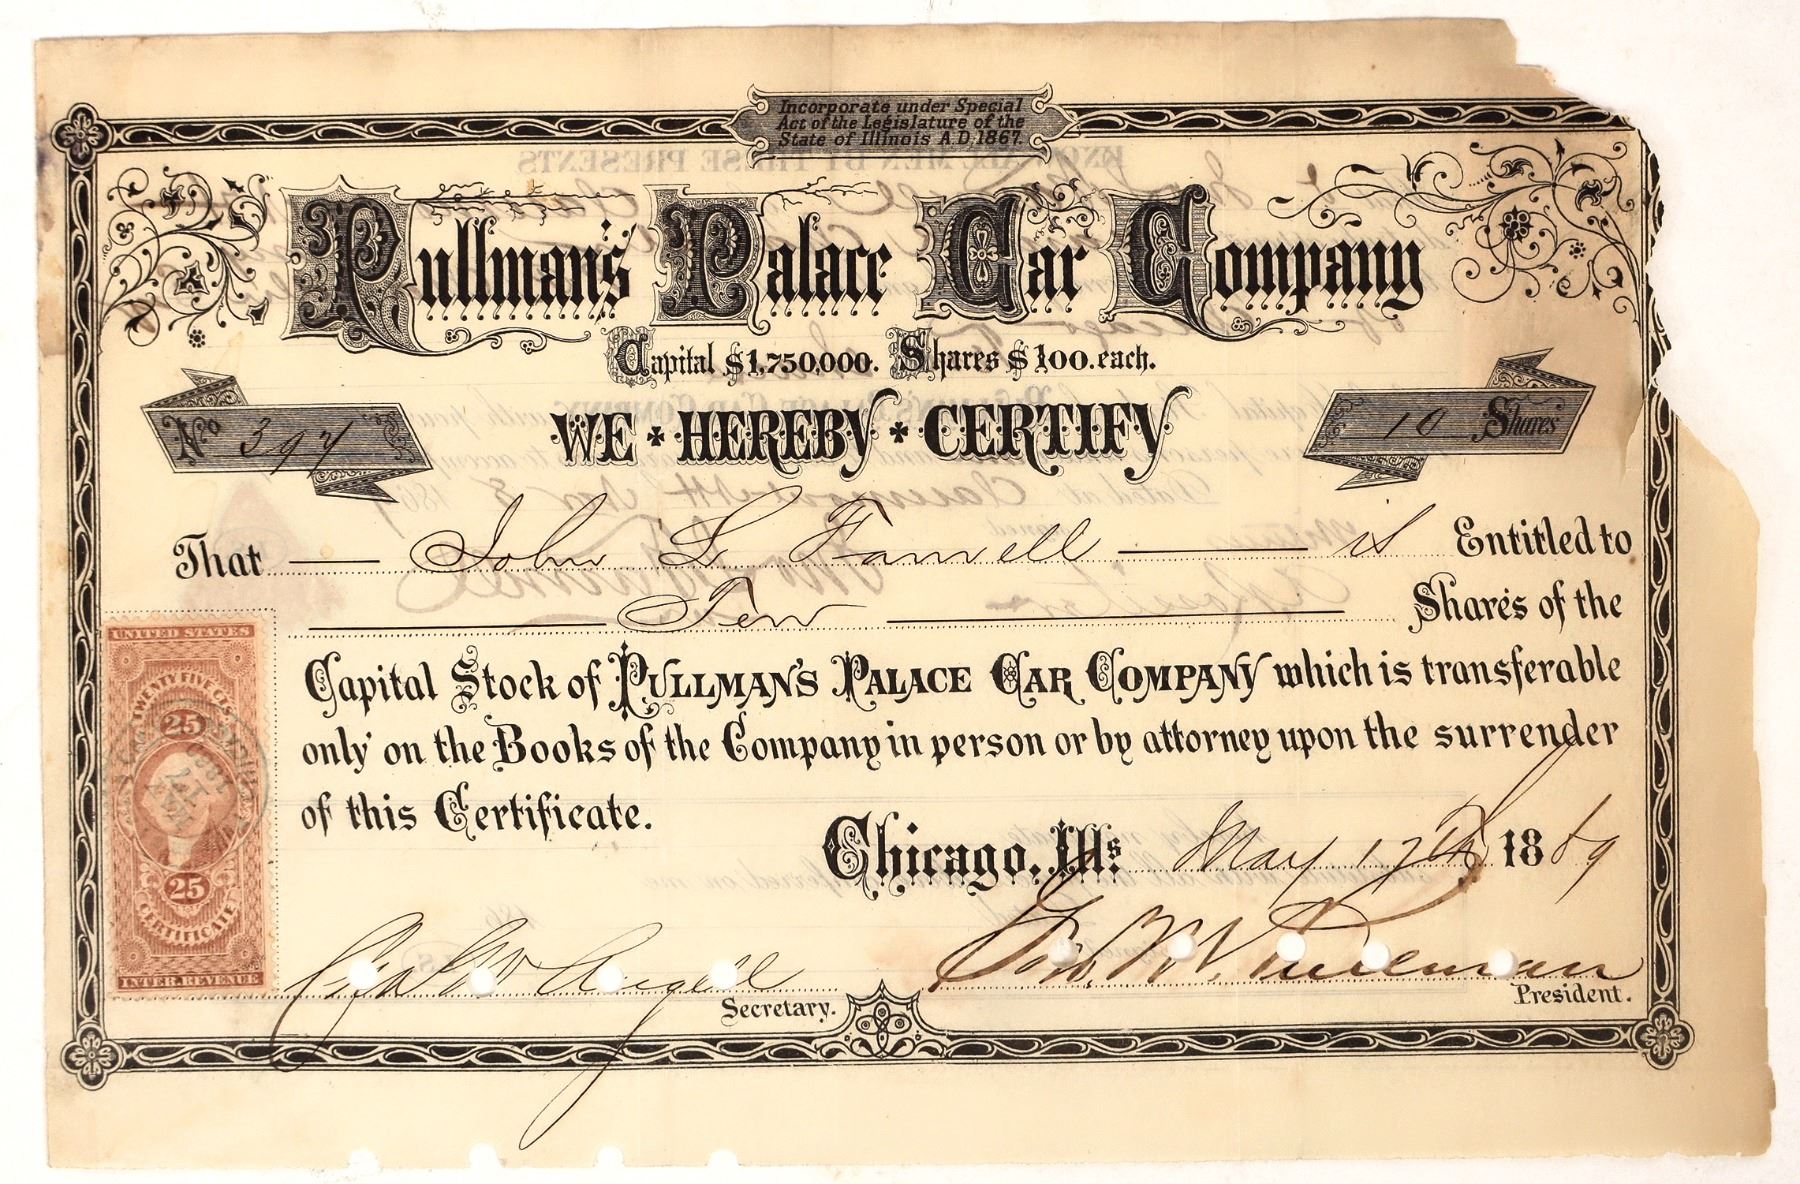 Incorporate under Special
Act of the Legislature of the
State of Illinois A.D. 1867.
Pullman's Palace Car Company
Capital $1,750,000. Shares $100. each.
No 397
WE HEREBY CERTIFY
10 Shares
That John L Farwell is Entitled to
Ten Shares of the
Capital Stock of PULLMAN'S PALACE CAR COMPANY which is transferable
only on the Books of the Company in person or by attorney upon the surrender
of this Certificate.
Chicago, Ills May 17th 1869
Secretary.
Geo. M. Pullman
President.
UNITED STATES
TWENTY FIVE CTS
25
MAY
17
25
CERTIFICATE
INTER. REVENUE